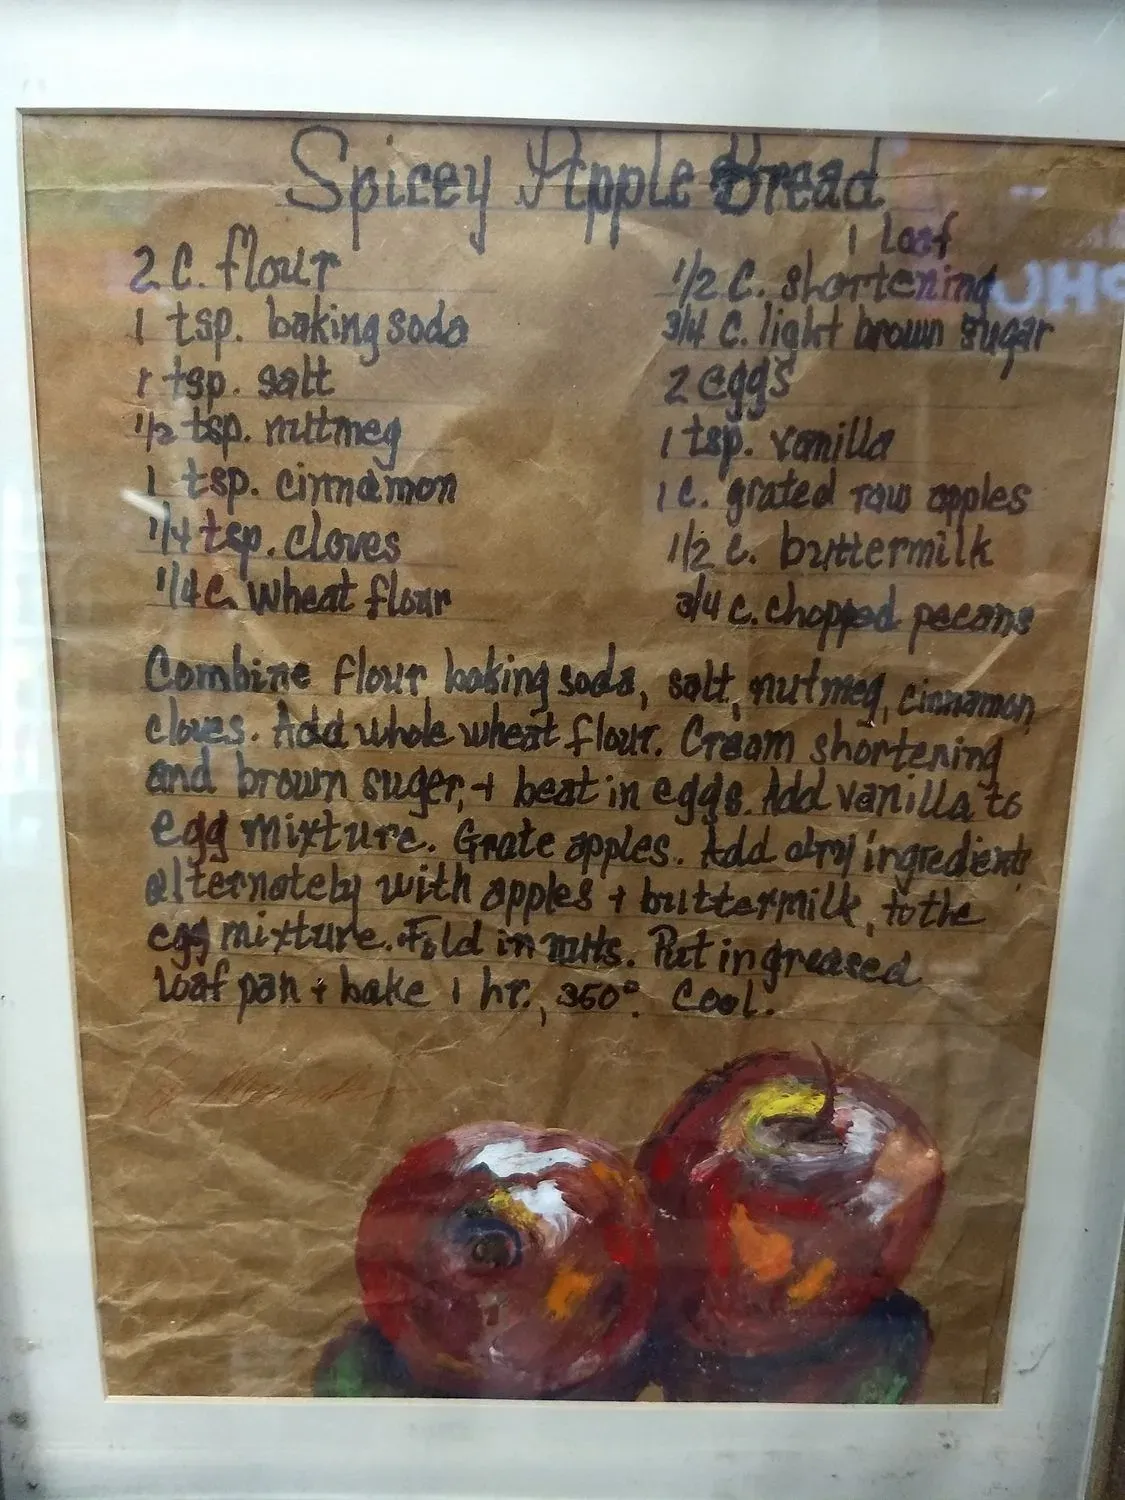 Spicey Apple Bread
1 loaf
2 C. flour
1 tsp. baking soda
1 tsp. salt
1/2 tsp. nutmeg
1 tsp. cinnamon
1/4 tsp. cloves
1/4 C. wheat flour
1/2 C. shortening
3/4 C. light brown sugar
2 eggs
1 tsp. vanilla
1 C. grated raw apples
1/2 C. buttermilk
3/4 C. chopped pecans
Combine flour baking soda, salt, nutmeg, cinnamon,
cloves. Add whole wheat flour. Cream shortening
and brown suger, + beat in eggs. Add vanilla to
egg mixture. Grate apples. Add dry ingredients
alternately with apples + buttermilk, to the
egg mixture. Fold in nuts. Put in greased
loaf pan + bake 1 hr., 350°. Cool.